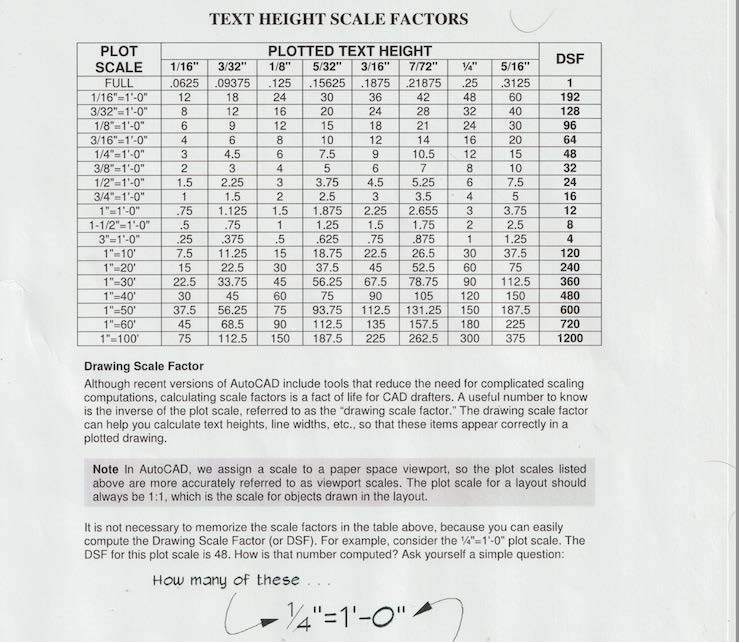 TEXT HEIGHT SCALE FACTORS
PLOT SCALE PLOTTED TEXT HEIGHT DSF
1/16" 3/32" 1/8" 5/32" 3/16" 7/72" ¼" 5/16"
FULL .0625 .09375 .125 .15625 .1875 .21875 .25 .3125 1
1/16"=1'-0" 12 18 24 30 36 42 48 60 192
3/32"=1'-0" 8 12 16 20 24 28 32 40 128
1/8"=1'-0" 6 9 12 15 18 21 24 30 96
3/16"=1'-0" 4 6 8 10 12 14 16 20 64
1/4"=1'-0" 3 4.5 6 7.5 9 10.5 12 15 48
3/8"=1'-0" 2 3 4 5 6 7 8 10 32
1/2"=1'-0" 1.5 2.25 3 3.75 4.5 5.25 6 7.5 24
3/4"=1'-0" 1 1.5 2 2.5 3 3.5 4 5 16
1"=1'-0" .75 1.125 1.5 1.875 2.25 2.655 3 3.75 12
1-1/2"=1'-0" .5 .75 1 1.25 1.5 1.75 2 2.5 8
3"=1'-0" .25 .375 .5 .625 .75 .875 1 1.25 4
1"=10' 7.5 11.25 15 18.75 22.5 26.5 30 37.5 120
1"=20' 15 22.5 30 37.5 45 52.5 60 75 240
1"=30' 22.5 33.75 45 56.25 67.5 78.75 90 112.5 360
1"=40' 30 45 60 75 90 105 120 150 480
1"=50' 37.5 56.25 75 93.75 112.5 131.25 150 187.5 600
1"=60' 45 68.5 90 112.5 135 157.5 180 225 720
1"=100' 75 112.5 150 187.5 225 262.5 300 375 1200
Drawing Scale Factor
Although recent versions of AutoCAD include tools that reduce the need for complicated scaling
computations, calculating scale factors is a fact of life for CAD drafters. A useful number to know
is the inverse of the plot scale, referred to as the "drawing scale factor." The drawing scale factor
can help you calculate text heights, line widths, etc., so that these items appear correctly in a
plotted drawing.
Note In AutoCAD, we assign a scale to a paper space viewport, so the plot scales listed
above are more accurately referred to as viewport scales. The plot scale for a layout should
always be 1:1, which is the scale for objects drawn in the layout.
It is not necessary to memorize the scale factors in the table above, because you can easily
compute the Drawing Scale Factor (or DSF). For example, consider the ¼"=1'-0" plot scale. The
DSF for this plot scale is 48. How is that number computed? Ask yourself a simple question:
How many of these . . .
¼"=1'-0"